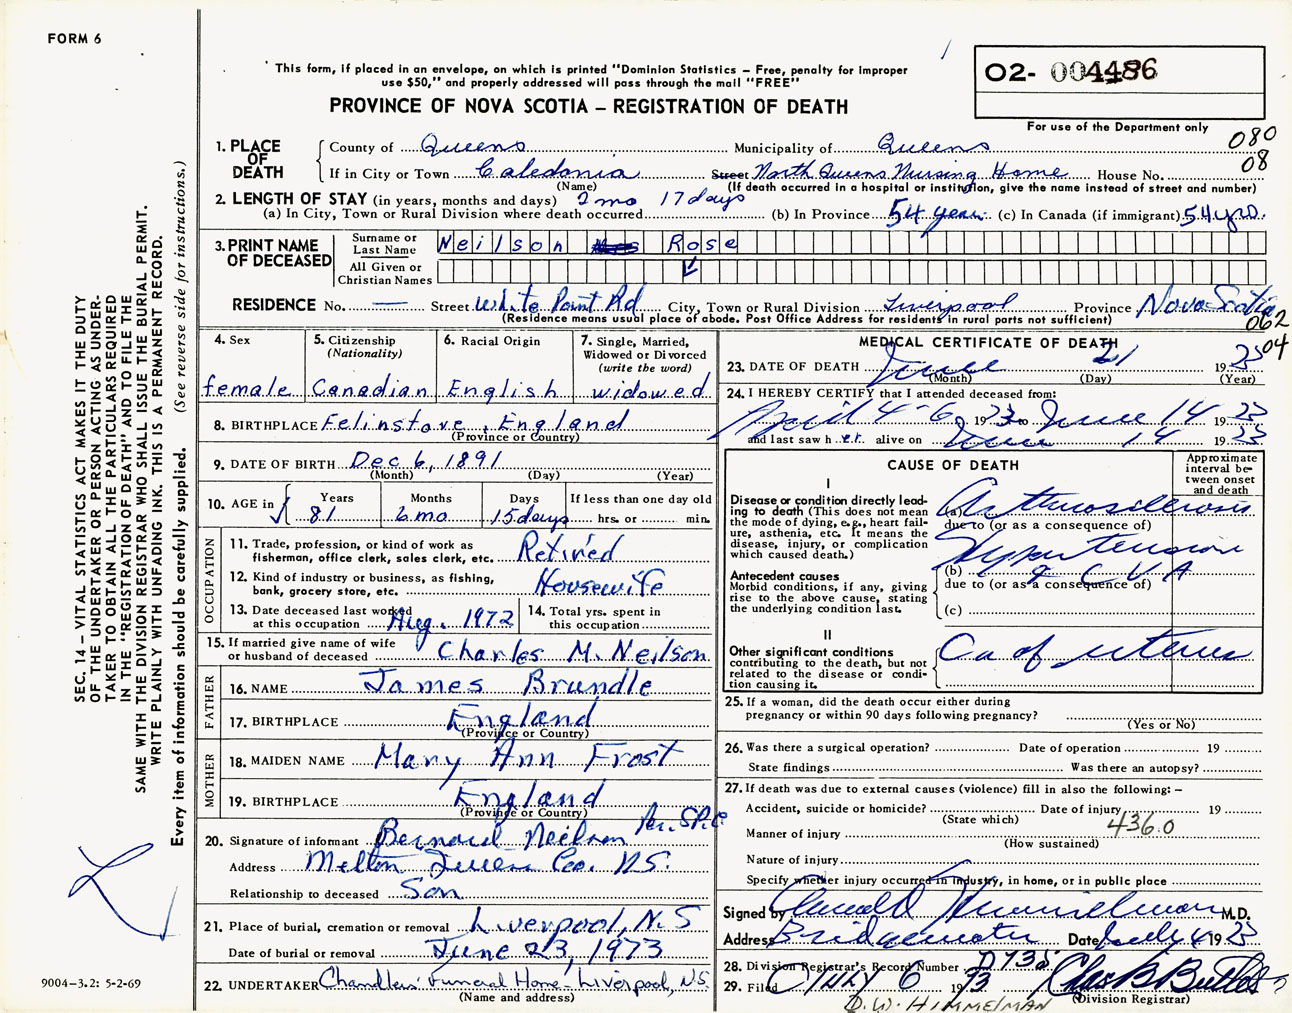 FORM 6
' This form, if placed in an envelope, on which is printed "Dominion Statistics – Free, penalty for improper
use $50," and properly addressed will pass through the mail "FREE"
PROVINCE OF NOVA SCOTIA – REGISTRATION OF DEATH
02- 004486
For use of the Department only
080
08
1. PLACE OF DEATH
County of Queens Municipality of Queens
If in City or Town Caledonia Street North Queens Nursing Home House No.
(Name) (If death occurred in a hospital or institution, give the name instead of street and number)
2. LENGTH OF STAY (in years, months and days) 2 mo 17 days
(a) In City, Town or Rural Division where death occurred (b) In Province 54 years (c) In Canada (if immigrant) 54 yrs.
3. PRINT NAME OF DECEASED
Surname or Last Name Neilson Rose
All Given or Christian Names
RESIDENCE No. — Street White Point Rd City, Town or Rural Division Liverpool Province Nova Scotia
(Residence means usual place of abode. Post Office Address for residents in rural parts not sufficient)
062
04
4. Sex
female
5. Citizenship (Nationality)
Canadian
6. Racial Origin
English
7. Single, Married, Widowed or Divorced (write the word)
widowed
8. BIRTHPLACE Felinstowe, England
(Province or Country)
9. DATE OF BIRTH Dec 6, 1891
(Month) (Day) (Year)
10. AGE in Years Months Days If less than one day old
81 6 mo 15 days hrs. or min.
OCCUPATION
11. Trade, profession, or kind of work as fisherman, office clerk, sales clerk, etc. Retired
12. Kind of industry or business, as fishing, bank, grocery store, etc. Housewife
13. Date deceased last worked at this occupation Aug. 1972
14. Total yrs. spent in this occupation
15. If married give name of wife or husband of deceased Charles M. Neilson
FATHER
16. NAME James Brundle
17. BIRTHPLACE England
(Province or Country)
MOTHER
18. MAIDEN NAME Mary Ann Frost
19. BIRTHPLACE England
(Province or Country)
20. Signature of informant Bernard Neilson Per.
Address Melton Queens Co. N.S.
Relationship to deceased Son
21. Place of burial, cremation or removal Liverpool, N.S
Date of burial or removal June 23, 1973
22. UNDERTAKER Chandlers' Funeral Home - Liverpool, N.S.
(Name and address)
MEDICAL CERTIFICATE OF DEATH
23. DATE OF DEATH June 21 1973
(Month) (Day) (Year)
24. I HEREBY CERTIFY that I attended deceased from:
April 4-6 1973 to June 14 1973
and last saw her alive on June 14 1973
CAUSE OF DEATH
Approximate interval between onset and death
I
Disease or condition directly leading to death (This does not mean the mode of dying, e.g., heart failure, asthenia, etc. It means the disease, injury, or complication which caused death.)
(a) Arteriosclerosis
due to (or as a consequence of)
Hypertension
Antecedent causes
Morbid conditions, if any, giving rise to the above cause, stating the underlying condition last.
(b) & CVA
due to (or as a consequence of)
(c)
II
Other significant conditions contributing to the death, but not related to the disease or condition causing it.
Ca of uterus
25. If a woman, did the death occur either during pregnancy or within 90 days following pregnancy?
(Yes or No)
26. Was there a surgical operation? Date of operation 19
State findings Was there an autopsy?
27. If death was due to external causes (violence) fill in also the following: –
Accident, suicide or homicide? Date of injury 19
(State which)
436.0
Manner of injury
(How sustained)
Nature of injury
Specify whether injury occurred in industry, in home, or in public place
Signed by D Himmelman M.D.
Address Bridgewater Date July 4 1973
28. Division Registrar's Record Number
29. Filed July 6 1973 Chas B Butler
(Division Registrar)
D.W. HIMMELMAN
SEC. 14 – VITAL STATISTICS ACT MAKES IT THE DUTY
OF THE UNDERTAKER OR PERSON ACTING AS UNDER-
TAKER TO OBTAIN ALL THE PARTICULARS REQUIRED
IN THE "REGISTRATION OF DEATH" AND TO FILE THE
SAME WITH THE DIVISION REGISTRAR WHO SHALL ISSUE THE BURIAL PERMIT.
WRITE PLAINLY WITH UNFADING INK. THIS IS A PERMANENT RECORD.
Every item of information should be carefully supplied. (See reverse side for instructions.)
9004-3.2: 5-2-69